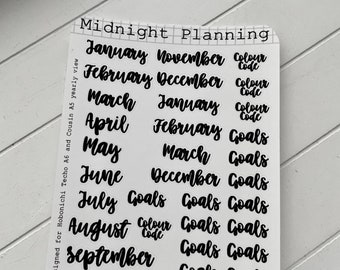 Midnight Planning
January November Colour Code
February December Colour Code
March January Colour Code
April February Goals
May March Goals
June December Goals
July Goals Goals Goals
August Colour Code Goals Goals
September Goals Goals
Goals
signed for Hobonichi Techo A6 and Cousin A5 yearly view